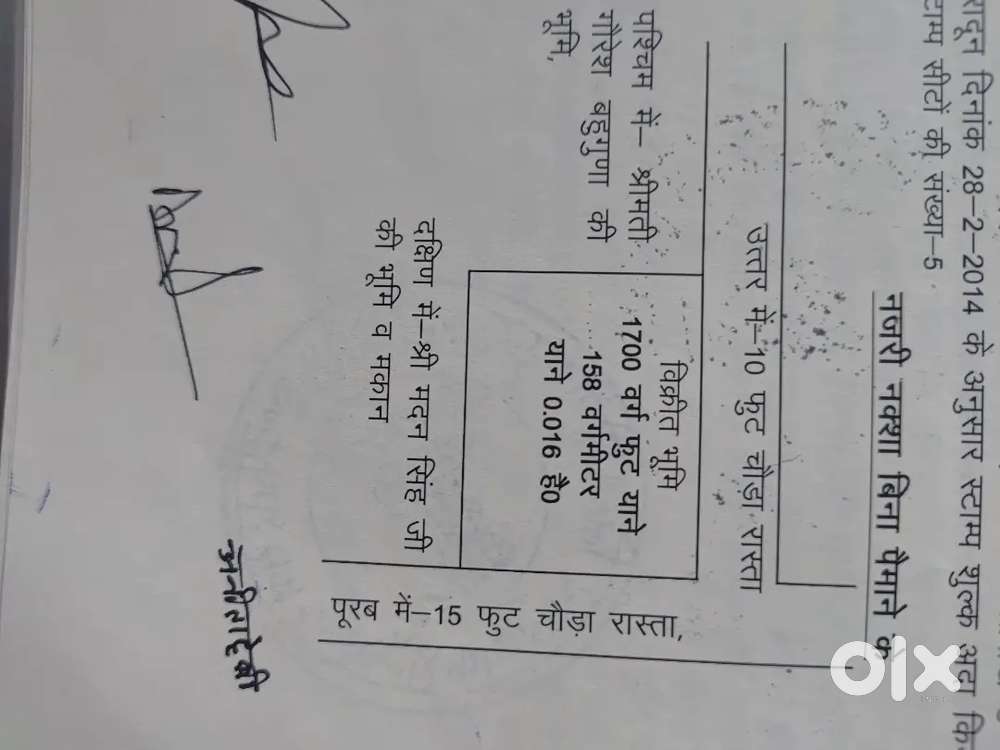 रादून दिनांक 28-2-2014 के अनुसार स्टाम्प शुल्क अदा कि
टाम्प सीटों की संख्या-5
नजरी नक्शा बिना पैमाने क
उत्तर में-10 फुट चौड़ा रास्ता
पश्चिम में- श्रीमती
गौरेश बहुगुणा की
भूमि,
विक्रीत भूमि
1700 वर्ग फुट याने
158 वर्गमीटर
याने 0.016 है0
पूरब में-15 फुट चौड़ा रास्ता,
दक्षिण में-श्री मदन सिंह जी
की भूमि व मकान
अनीता देवी
olx